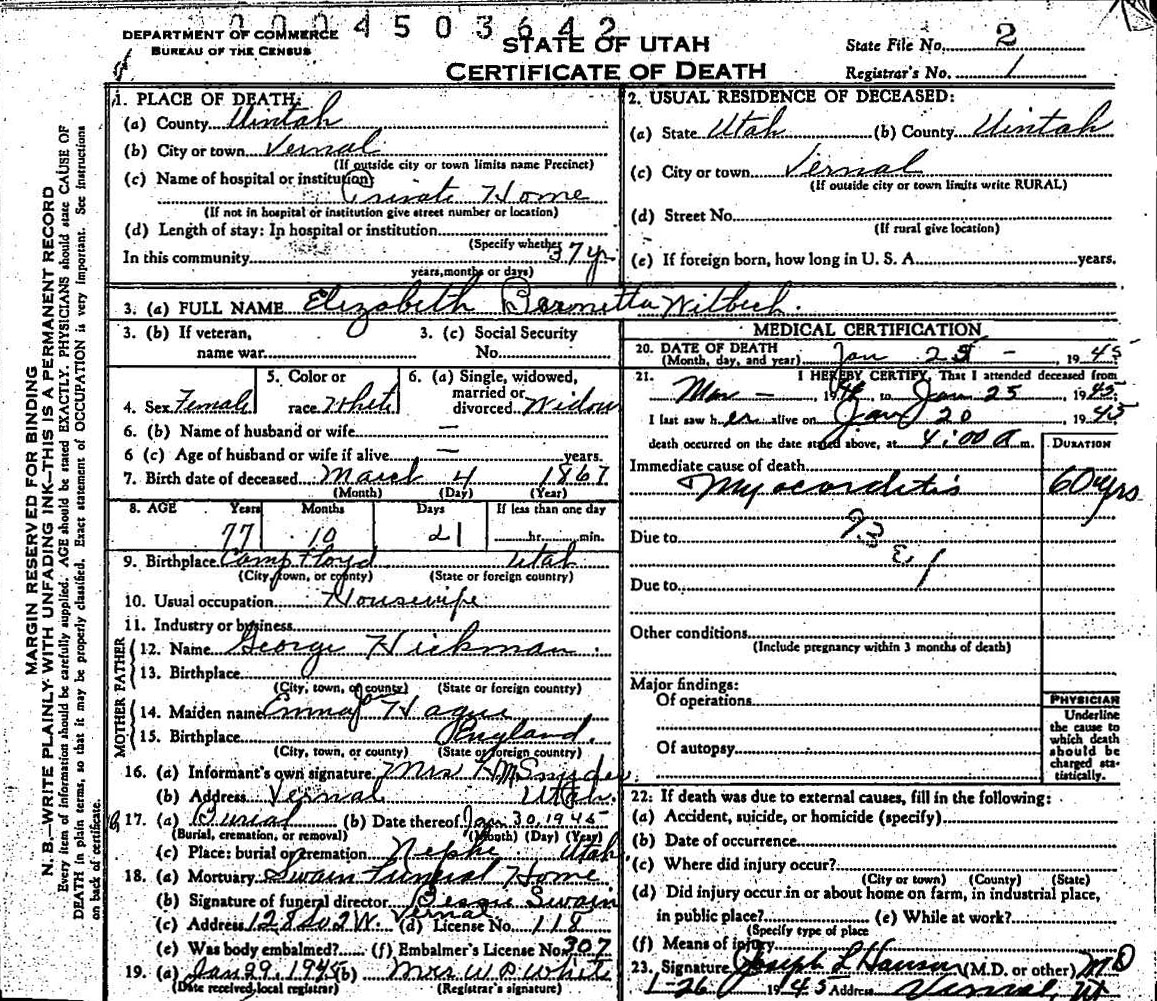 2004503642
DEPARTMENT OF COMMERCE
BUREAU OF THE CENSUS
STATE OF UTAH
CERTIFICATE OF DEATH
State File No. 2
Registrar's No. 1
MARGIN RESERVED FOR BINDING
N. B.—WRITE PLAINLY WITH UNFADING INK—THIS IS A PERMANENT RECORD
Every item of information should be carefully supplied. AGE should be stated EXACTLY. PHYSICIANS should state CAUSE OF
DEATH in plain terms, so that it may be properly classified. Exact statement of OCCUPATION is very important. See instructions
on back of certificate.
1. PLACE OF DEATH:
(a) County Uintah
(b) City or town Vernal
(If outside city or town limits name Precinct)
(c) Name of hospital or institution:
Private Home
(If not in hospital or institution give street number or location)
(d) Length of stay: In hospital or institution
(Specify whether
In this community 37 yr
years, months or days)
2. USUAL RESIDENCE OF DECEASED:
(a) State Utah (b) County Uintah
(c) City or town Vernal
(If outside city or town limits write RURAL)
(d) Street No.
(If rural give location)
(e) If foreign born, how long in U. S. A. years.
3. (a) FULL NAME Elizabeth Witbeck.
3. (b) If veteran,
name war
3. (c) Social Security
No.
4. Sex Female
5. Color or
race White
6. (a) Single, widowed,
married or
divorced Widow
6. (b) Name of husband or wife —
6 (c) Age of husband or wife if alive — years.
7. Birth date of deceased March 4 1867
(Month) (Day) (Year)
8. AGE Years Months Days If less than one day
77 10 21 hr. min.
9. Birthplace Camp Floyd Utah
(City, town, or county) (State or foreign country)
10. Usual occupation Housewife
11. Industry or business
FATHER
12. Name George Hickman
13. Birthplace
(City, town, or county) (State or foreign country)
MOTHER
14. Maiden name Emma J Hague
15. Birthplace England.
(City, town, or county) (State or foreign country)
16. (a) Informant's own signature Mrs H M Snyder
(b) Address Vernal Utah.
17. (a) Burial (b) Date thereof Jan 30, 1945
(Burial, cremation, or removal) (Month) (Day) (Year)
(c) Place: burial or cremation Nephi Utah
18. (a) Mortuary Swain Funeral Home
(b) Signature of funeral director Swain
(c) Address 128 So 2 W. Vernal (d) License No. 118
(e) Was body embalmed? (f) Embalmer's License No. 307
19. (a) Jan 29, 1945 (b) Mrs W P White
(Date received local registrar) (Registrar's signature)
MEDICAL CERTIFICATION
20. DATE OF DEATH
(Month, day, and year) Jan 25 - , 1945
21. I HEREBY CERTIFY, That I attended deceased from
1944, to Jan 25, 1945.
I last saw her alive on Jan 20, 1945
death occurred on the date stated above, at 4:00 A m.
DURATION
Immediate cause of death
Myocarditis 60 yrs
93 E 1
Due to
Due to
Other conditions
(Include pregnancy within 3 months of death)
Major findings:
Of operations
Of autopsy
PHYSICIAN
Underline
the cause to
which death
should be
charged sta-
tistically.
22. If death was due to external causes, fill in the following:
(a) Accident, suicide, or homicide (specify)
(b) Date of occurrence
(c) Where did injury occur?
(City or town) (County) (State)
(d) Did injury occur in or about home on farm, in industrial place,
in public place? (e) While at work?
(Specify type of place
(f) Means of injury
23. Signature Joseph L Hansen (M.D. or other) MD
1-26 1945 Address Vernal, Ut